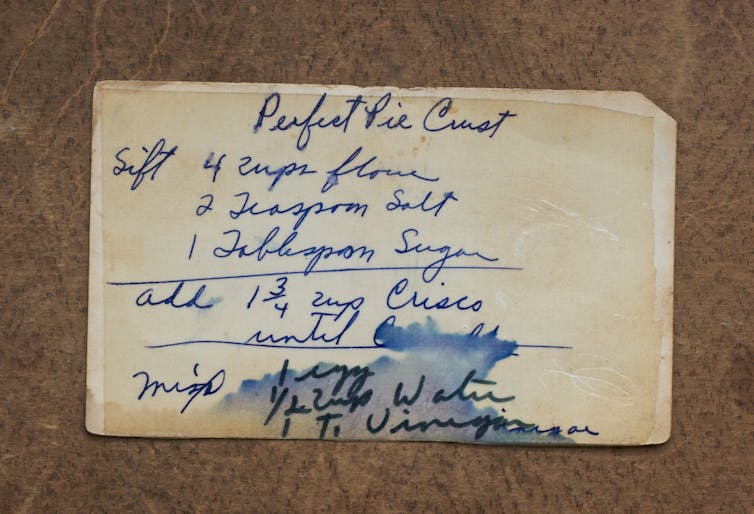 Perfect Pie Crust
Sift 4 cups flour
2 Teaspoon Salt
1 Tablespoon Sugar
add 1 3/4 cup Crisco
until
1 egg
1/2 cup Water
1 T. Vinegar